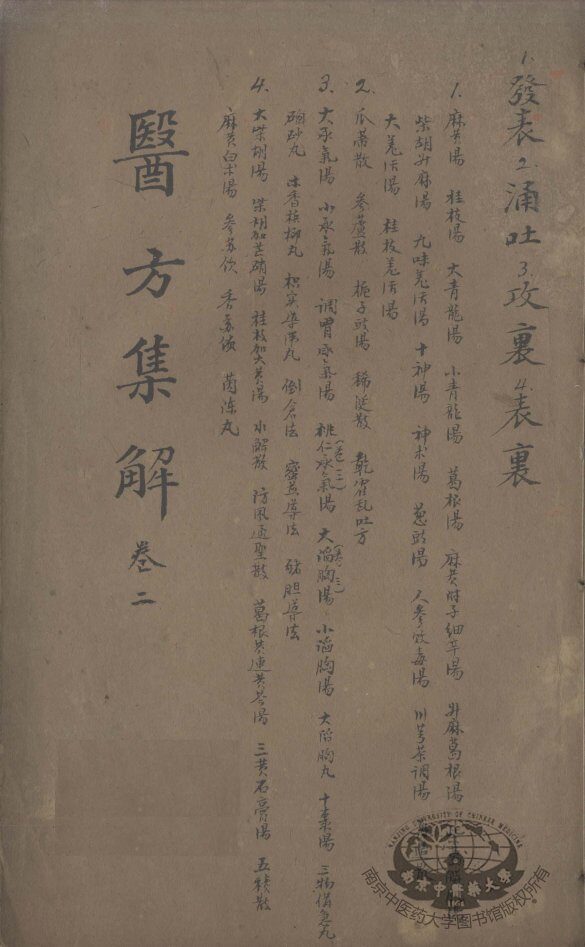 1. 發表 2. 涌吐 3. 攻裏 4. 表裏
1. 麻黄湯 桂枝湯 大青龍湯 小青龍湯 葛根湯 麻黄附子細辛湯 升麻葛根湯
柴胡升麻湯 九味羌活湯 十神湯 神术湯 葱豉湯 人參敗毒湯 川芎茶調湯
大羗活湯 桂枝羗活湯
2. 瓜蒂散 參蘆散 栀子豉湯 稀涎散 乾霍乱吐方
3. 大承氣湯 小承氣湯 调胃承氣湯 桃仁承氣湯 大陷胸湯 小陷胸湯 大陷胸丸 十棗湯 三物備急丸
硇砂丸 木香槟榔丸 枳实導滞丸 倒倉法 蜜煎導法 猪胆導法
4. 大柴胡湯 柴胡加芒硝湯 桂枝加大黄湯 水解散 防風通聖散 葛根黄連黄芩湯 三黄石膏湯 五積散
麻黄白术湯 參苏饮 香苏饮 茵陈丸
醫方集解 卷二
NANJING UNIVERSITY OF CHINESE MEDICINE
南京中醫藥大學
1954
南京中医药大学图书馆版权所有